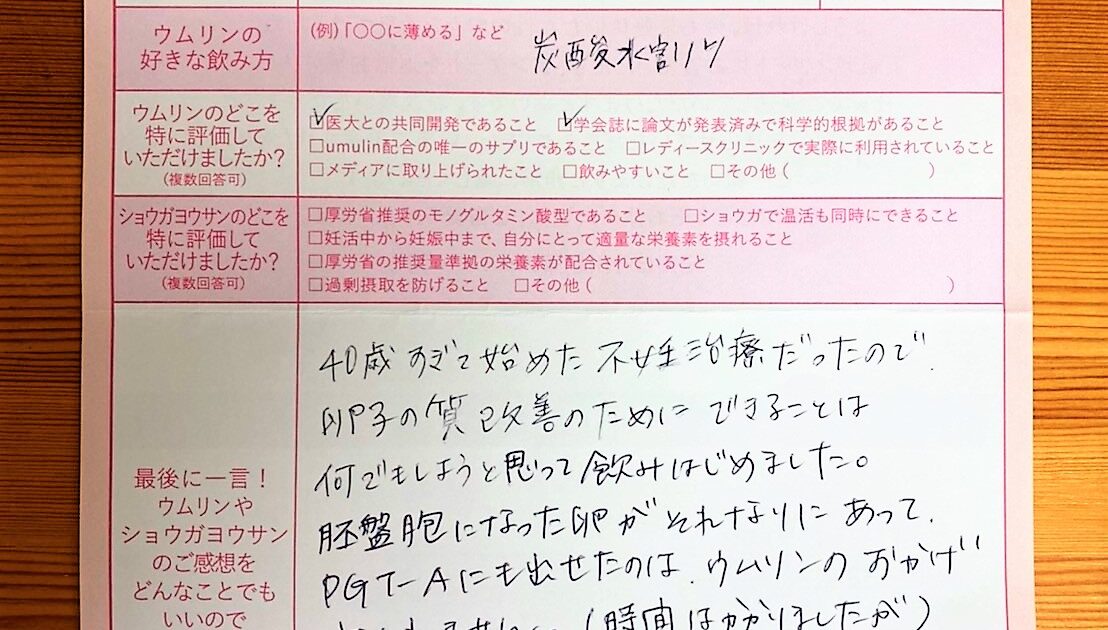 ウムリンの
好きな飲み方
(例)「〇〇に薄める」など
炭酸水割り
ウムリンのどこを
特に評価して
いただけましたか?
(複数回答可)
☑医大との共同開発であること ☑学会誌に論文が発表済みで科学的根拠があること
□umulin配合の唯一のサプリであること □レディースクリニックで実際に利用されていること
□メディアに取り上げられたこと □飲みやすいこと □その他( )
ショウガヨウサンのどこを
特に評価して
いただけましたか?
(複数回答可)
□厚労省推奨のモノグルタミン酸型であること □ショウガで温活も同時にできること
□妊活中から妊娠中まで、自分にとって適量な栄養素を摂れること
□厚労省の推奨量準拠の栄養素が配合されていること
□過剰摂取を防げること □その他( )
最後に一言!
ウムリンや
ショウガヨウサン
のご感想を
どんなことでも
いいので
40歳すぎて始めた不妊治療だったので、
卵子の質改善のためにできることは
何でもしようと思って飲みはじめました。
胚盤胞になった卵がそれなりにあって、
PGT-Aにも出せたのは、ウムリンのおかげ
(時間はかかりましたが)